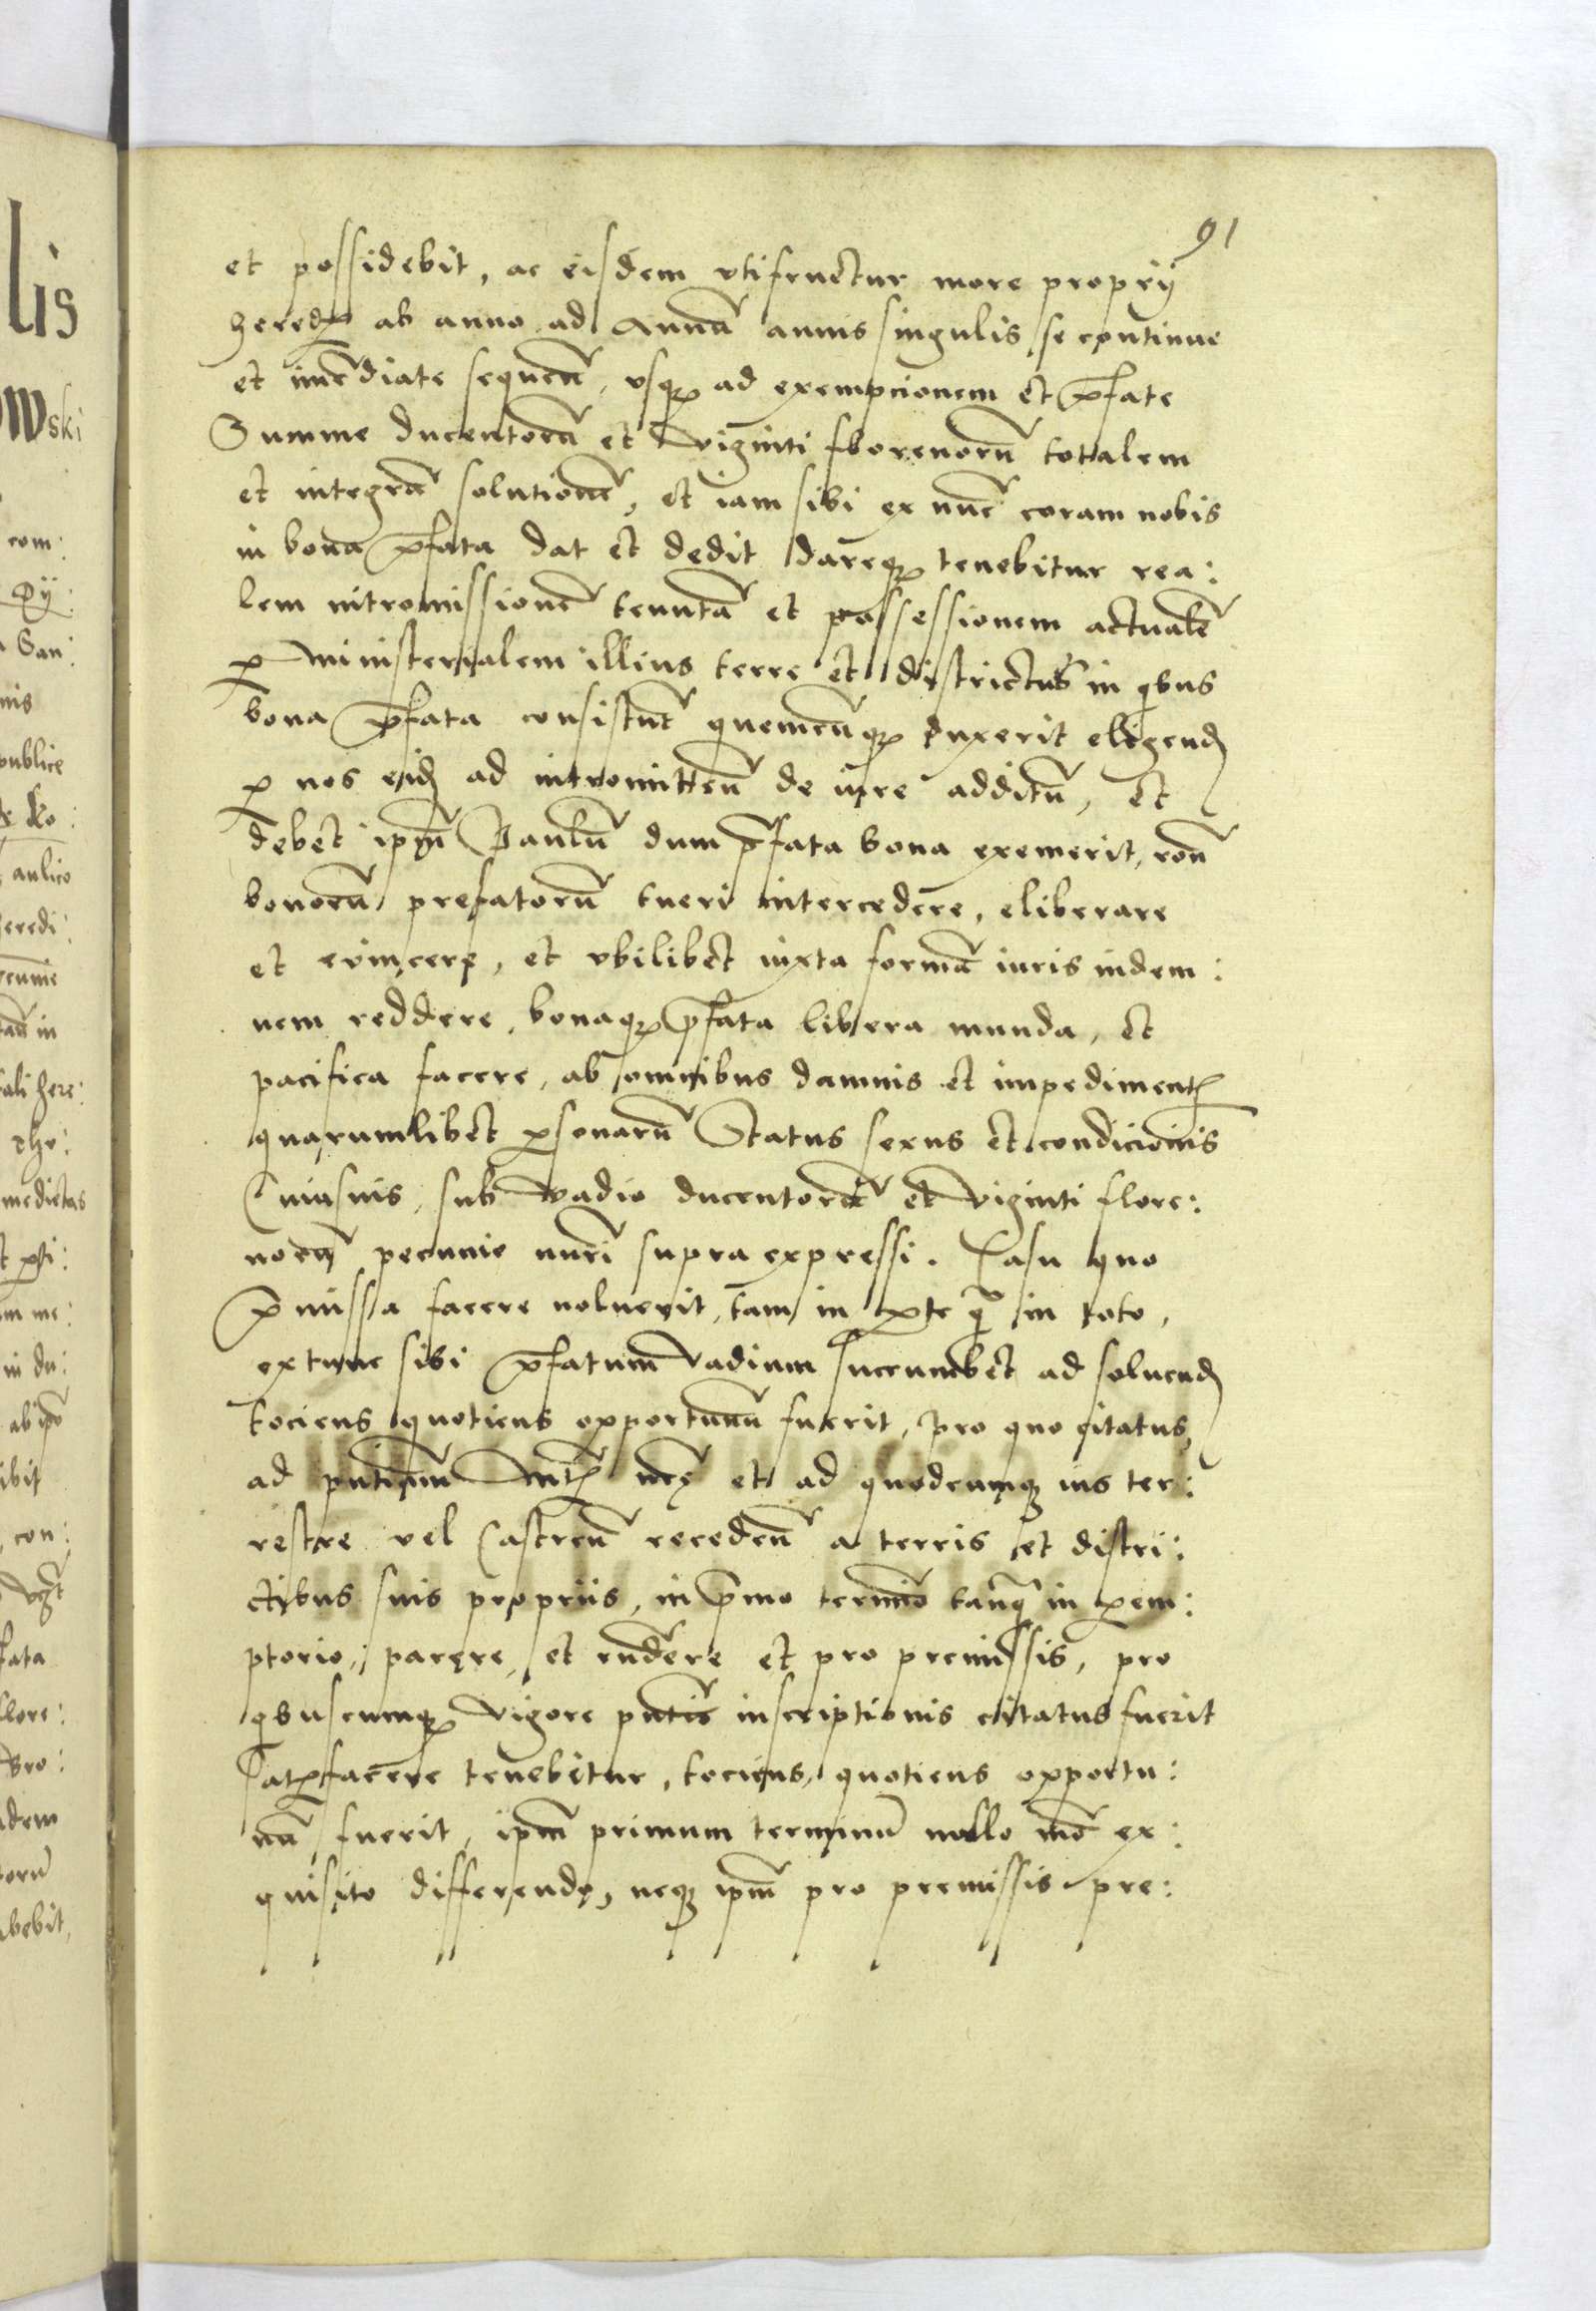 91
et possidebit, ac eisdem vtifruetur more proprij
hered ab anno ad Annũ annis singulis se continue
et imẽdiate sequeñ, vsqʒ ad exempcionem et p̃fate
Summe ducentorũ et Viginti florenorũ totalem
et integrã solutionẽ, et iam sibi ex nũc coram nobis
in bona p̃fata dat et dedit dareqʒ tenebitur rea:
lem intromissionẽ tenutã et possessionem actualẽ
ꝑ Ministerialem illius terre et districtus in qbus
bona p̃fata consistũt quemcũqʒ duxerit eligend
ꝑ nos eid ad intromitteñ de iure additũ, et
debet ipm̃ Paulũ dum p̃fata bona exemerit, roñ
bonorũ prefatorũ tueri intercedere, eliberare
et euincere, et vbilibet iuxta formã iuris indem:
nem reddere, bonaqʒ p̃fata libera munda, et
pacifica facere, ab omnibus damnis et impediment
quarumlibet ꝑsonarũ Status sexus et condicionis
Cuiusuis, sub vadio ducentorũ et Viginti flore:
norũ pecunie nuri supra expressi. Casu quo
p̃missa facere noluerit, tam in ꝑte q̃ in toto,
extunc sibi p̃fatum Vadium succumbet ad soluend
tociens quotiens opportunũ fuerit, pro quo citatus
ad pñtiam Mtis nrę et ad quodcumqʒ ius ter:
restre vel Castreñ recedeñ a terris et distri:
ctibus suis propriis, in p̃mo termino tanq̃ in ꝑem:
ptorio, parere, et rñdere et pro premissis, pro
qbuscumqʒ vigore pñtis inscriptionis citatus fuerit
Satisfacere tenebitur, tociens, quotiens opportu:
nũ fuerit, ipm̃ primum terminũ nullo mõ ex:
quisito differendo, neqʒ ipm̃ pro premissis pre:
lis
wski
com:
San:
nis
publice
aulico
heredi:
ecunie
in
ali here:
medietas
in du:
ibit
con:
fata
flore:
dem
torũ
abebit,